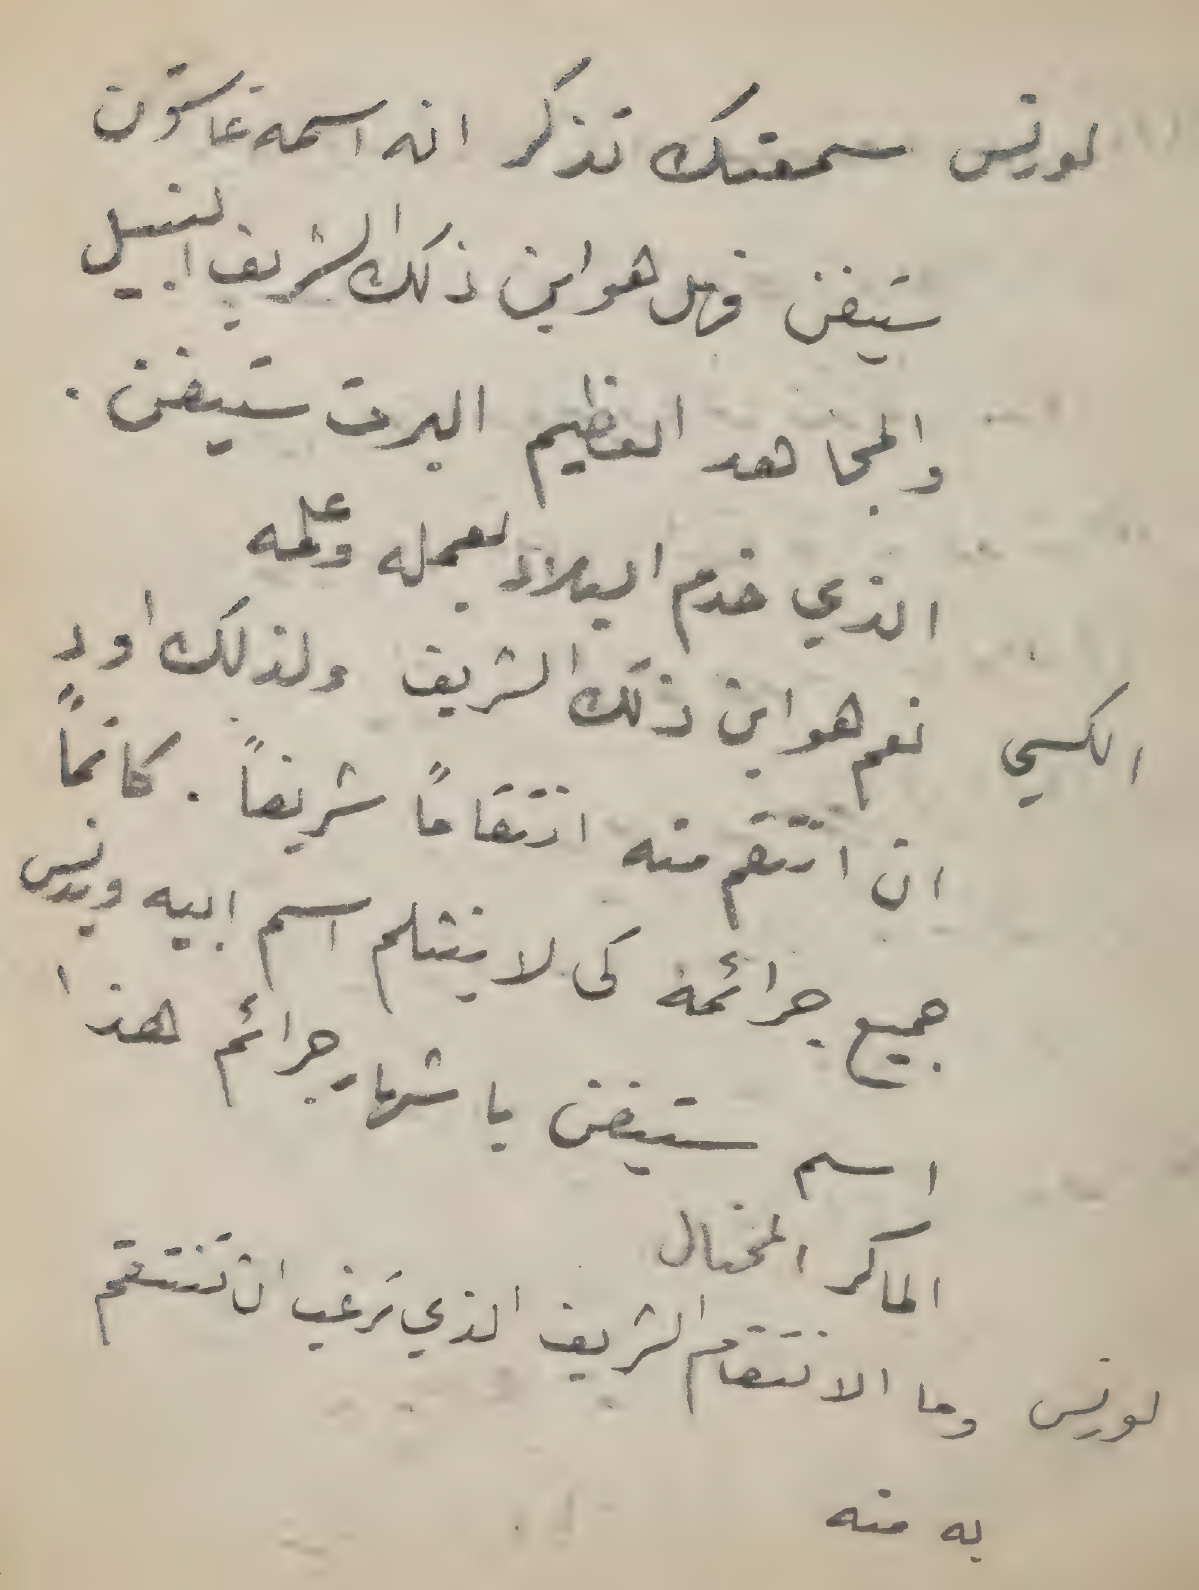 لورنس سمعتك تذكر انه اسمه غاستون
ستيفن فهل هو ابن ذلك الشريف النبيل
والمجاهد العظيم البرت ستيفن .
الذي خدم البلاد بعمله وعلمه
الكسي نعم هو ابن ذلك الشريف ولذلك اود
ان انتقم منه انتقاماً شريفاً . كاتماً
جميع جرائمه كي لا ينثلم اسم ابيه ويدنس
اسم ستيفن باشهار جرائم هذا
الماكر المحتال
لورنس وما الانتقام الشريف الذي ترغب ان تنتقم
به منه